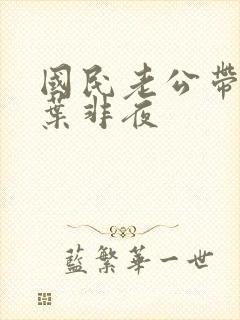 國民老公帶
葉非夜
藍繁華一世